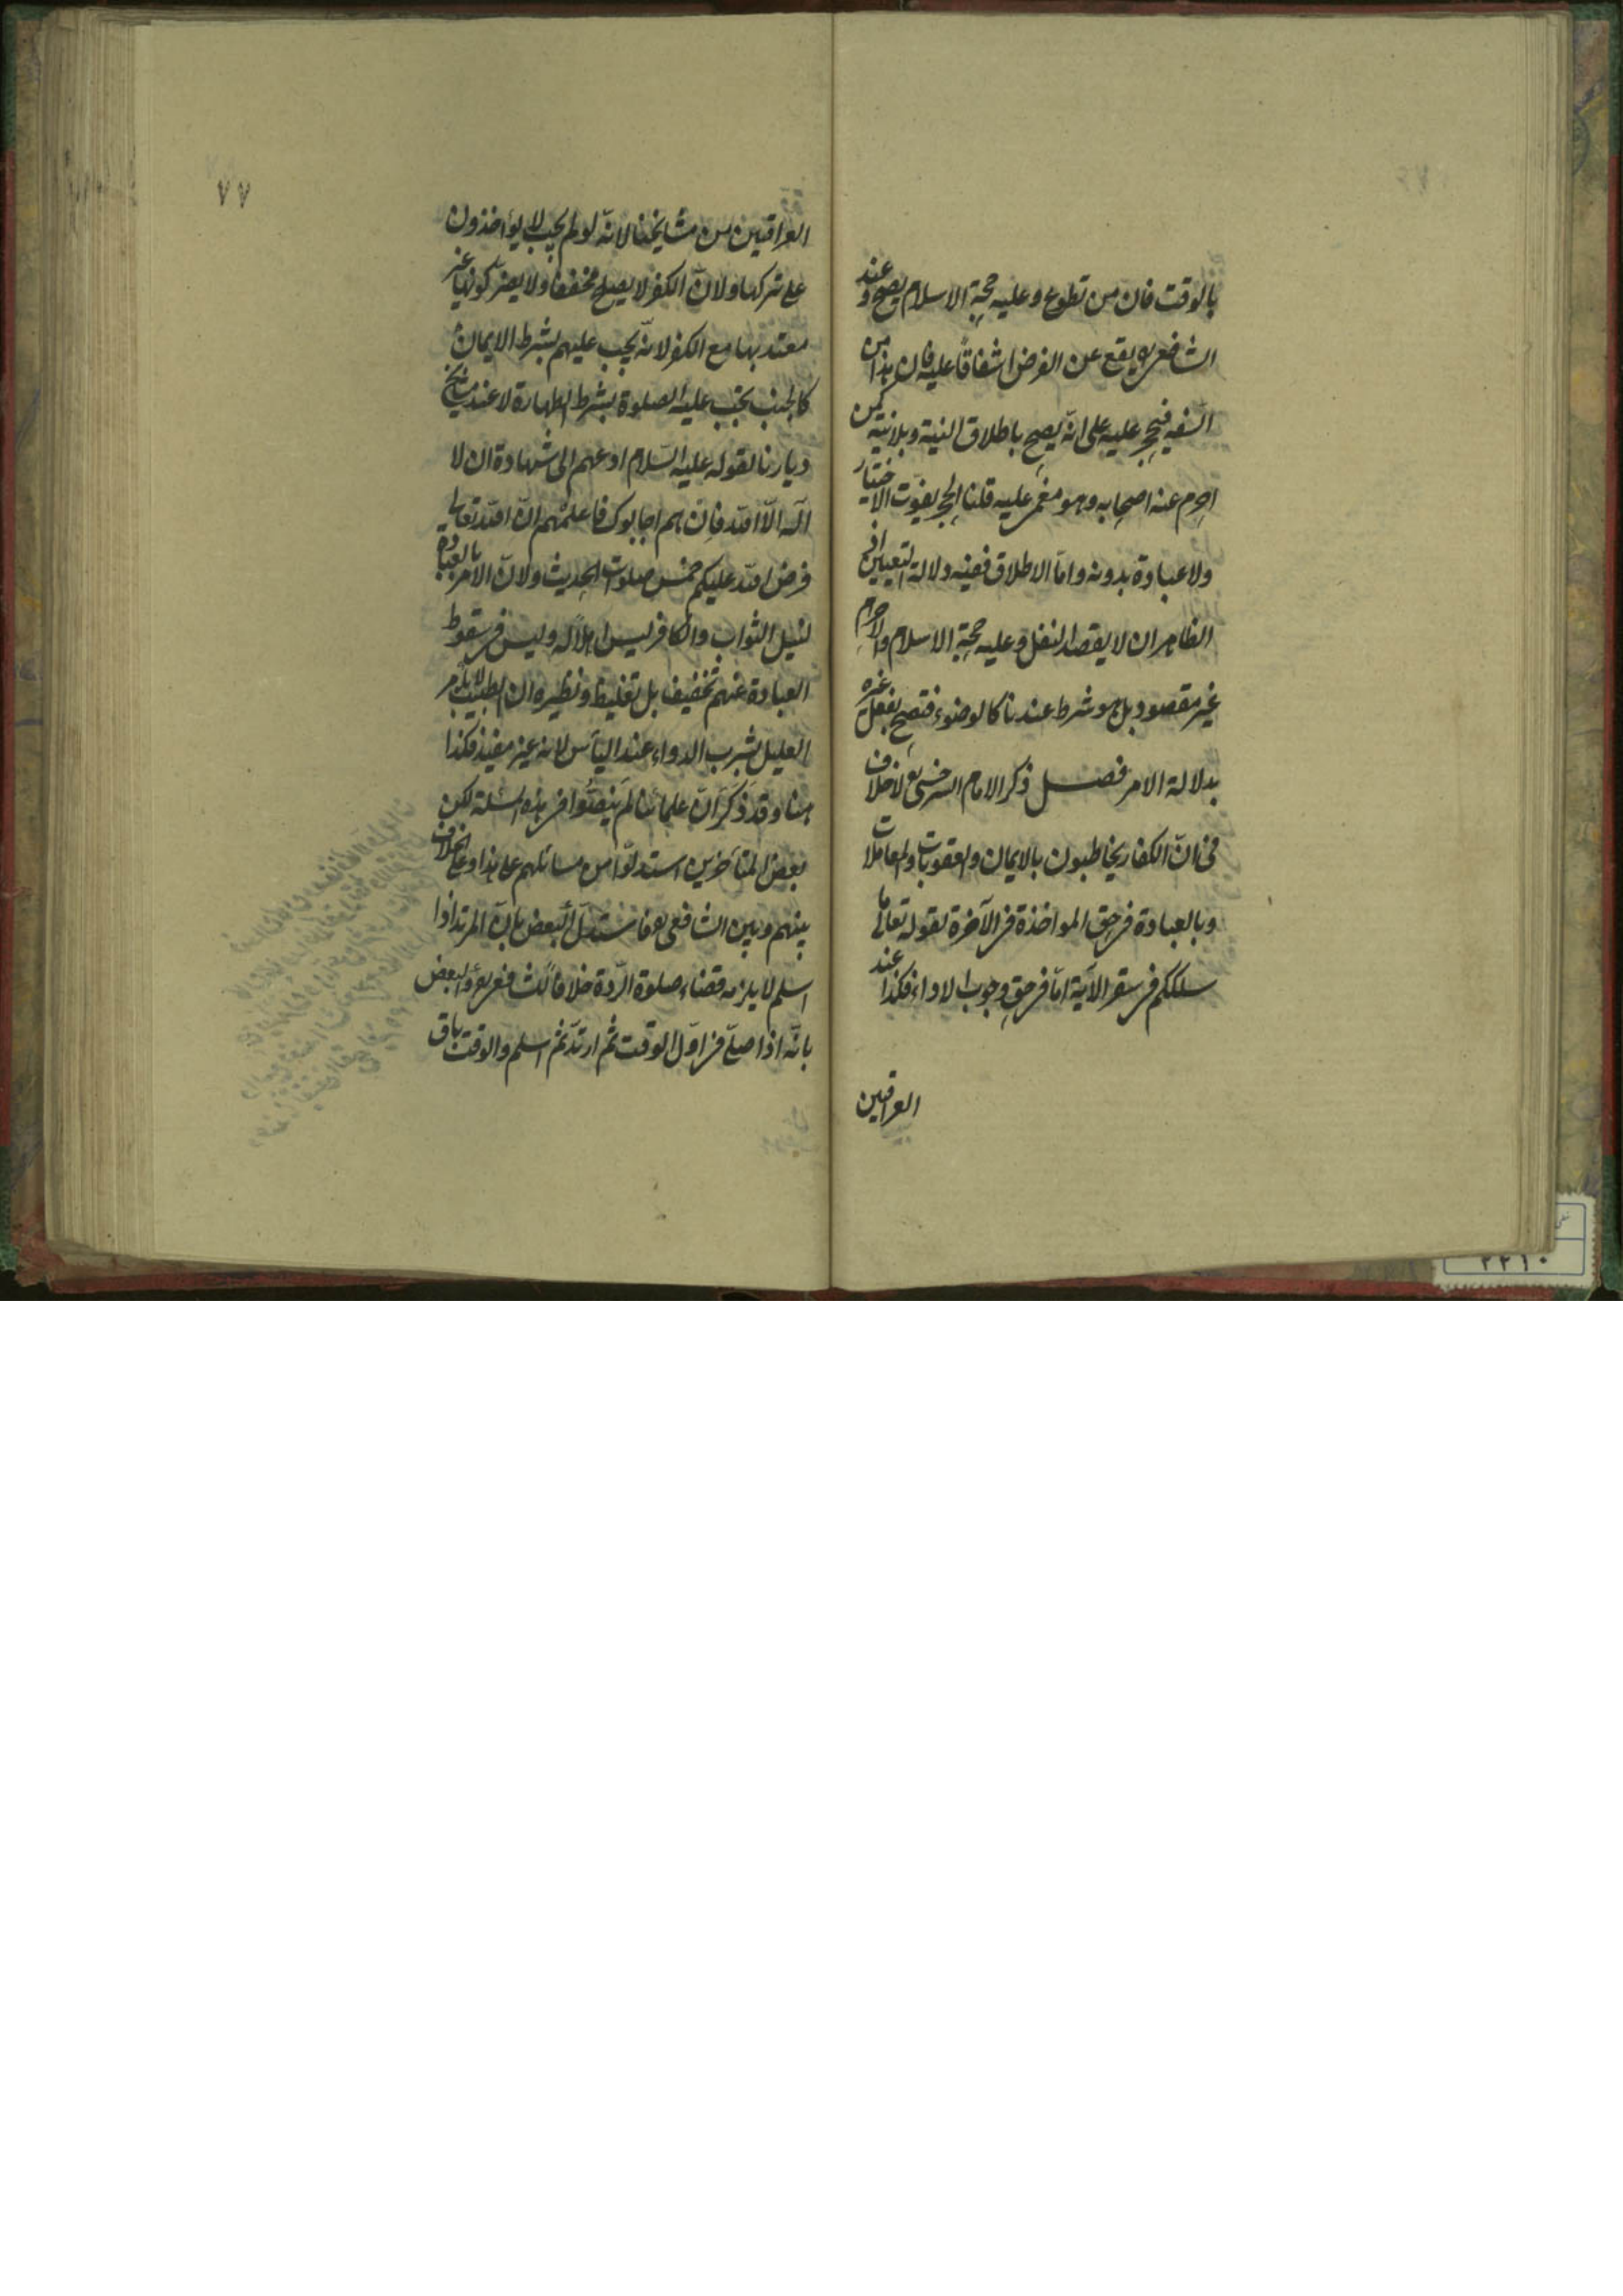 بالوقت فان من تطوع وعليه حجة الاسلام يصح وعند
الشافعي رح يقع عن الفرض اشفاقا عليه فان هذا من
السفه فيحجر عليه على انه يصح باطلاق النية وبلا نية كمن
احرم عنه اصحابه وهو مغمى عليه قلنا الحجر يفوت الاختيار
ولا عبادة بدونه واما الاطلاق ففيه دلالة التعيين اذ
الظاهر ان لا يقصد النفل وعليه حجة الاسلام والاحرام
غير مقصود بل هو شرط عندنا كالوضوء فتصح بفعل غيره
بدلالة الامر فصل ذكر الامام السرخسي رح لا خلاف
في انّ الكفار يخاطبون بالايمان والعقوبات والمعاملات
وبالعبادة في حق المواخذة في الآخرة لقوله تعالى ما
سلككم في سقر الآية امّا في حق وجوب الاداء فكذا عند
العراقيين
٧٧
العراقيين من مشايخنا لانّه لو لم يجب لا يؤاخذون
على تركها ولانّ الكفر لا يصلح مخففا ولا يضرّ كونها غير
معتد بها مع الكفر لانّه يجب عليهم بشرط الايمان
كالجنب يجب عليه الصلوة بشرط الطهارة لا عند مشايخ
ديارنا لقوله عليه السّلام ادعهم الى شهادة ان لا
اله الّا الله فان هم اجابوك فاعلمهم انّ الله تعالى
فرض الله عليكم خمس صلوات الحديث ولانّ الامر بالعبادة
لنيل الثواب والكافر ليس اهلا له وليس في سقوط
العبادة عنهم تخفيف بل تغليظ ونظيره ان الطبيب لا يأمر
العليل بشرب الدواء عند اليأس لانه غير مفيد فكذا
هنا وقد ذكر انّ علمائنا لم ينصّوا في هذه المسئلة لكن
بعض المتأخرين استدلّوا من مسائلهم على هذا وعلى الخلاف
بينهم وبين الشافعي رح فاستدلّ البعض بانّ المرتد اذا
اسلم لا يلزمه قضاء صلوة الردّة خلافا للشافعي رح والبعض
بانّه اذا صلّى في اوّل الوقت ثم ارتدّ ثم اسلم والوقت باق
٢٢١٠